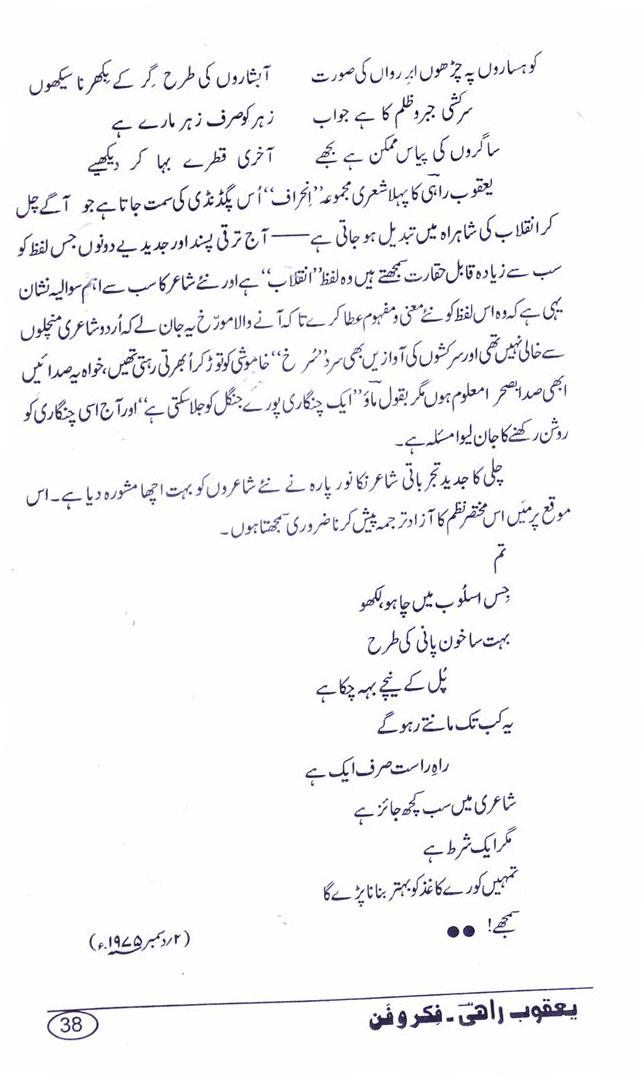 کوہساروں پہ چڑھوں ابرِ رواں کی صورت آبشاروں کی طرح گِر کے بِکھرنا سیکھوں
سرکشی جبر و ظلم کا ہے جواب زہر کو صرف زہر مارے ہے
ساگروں کی پیاس ممکن ہے بجھے آخری قطرے بہا کر دیکھیے
یعقوب راہیؔ کا پہلا شعری مجموعہ ”اِنحراف“ اُس پگڈنڈی کی سمت جاتا ہے جو آگے چل
کر انقلاب کی شاہراہ میں تبدیل ہو جاتی ہے —— آج ترقی پسند اور جدیدیے دونوں جس لفظ کو
سب سے زیادہ قابل حقارت سمجھتے ہیں وہ لفظ ”انقلاب“ ہے اور نئے شاعر کا سب سے اہم سوالیہ نشان
یہی ہے کہ وہ اس لفظ کو نئے معنی و مفہوم عطا کرے تاکہ آنے والا مورّخ یہ جان لے کہ اُردو شاعری منچلوں
سے خالی نہیں تھی اور سرکشوں کی آوازیں بھی سرد ”سُرخ“ خاموشی کو توڑ کر اُبھرتی رہتی تھیں، خواہ یہ صدائیں
ابھی صدا بصحرا معلوم ہوں مگر بقول ماؤ ”ایک چنگاری پورے جنگل کو جلا سکتی ہے“ اور آج اسی چنگاری کو
روشن رکھنے کا جان لیوا مسئلہ ہے۔
چلی کا جدید تجرباتی شاعر نکانور پارہ نے نئے شاعروں کو بہت اچھا مشورہ دیا ہے۔ اس
موقع پر میں اس مختصر نظم کا آزاد ترجمہ پیش کرنا ضروری سمجھتا ہوں۔
تم
جِس اسلُوب میں چاہو، لکھو
بہت سا خون پانی کی طرح
پُل کے نیچے بہہ چکا ہے
یہ کب تک مانتے رہو گے
راہِ راست صرف ایک ہے
شاعری میں سب کچھ جائز ہے
مگر ایک شرط ہے
تمہیں کورے کاغذ کو بہتر بنانا پڑے گا
سمجھے! ●●
(۲/دسمبر ۱۹۷۵ء)
یعقوب راہیؔ ۔ فِکر و فَن
38